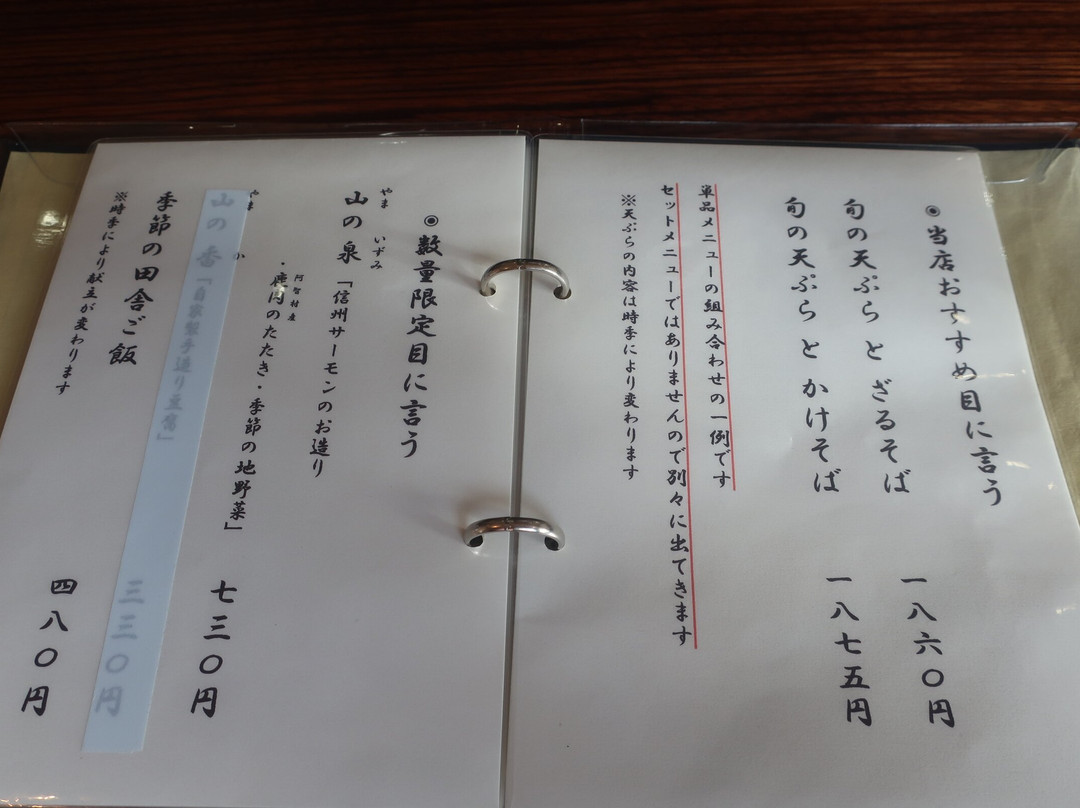 ◉当店おすすめ目に言う
旬の天ぷら と ざるそば 一八六〇円
旬の天ぷら と かけそば 一八七五円
単品メニューの組み合わせの一例です
セットメニューではありませんので別々に出てきます
※天ぷらの内容は時季により変わります
◉数量限定目に言う
やま いずみ
山の泉「信州サーモンのお造り
阿智村産
・鹿肉のたたき・季節の地野菜」 七三〇円
やま か
山の香「自家製手造り豆腐」 三三〇円
季節の田舎ご飯 四八〇円
※時季により献立が変わります